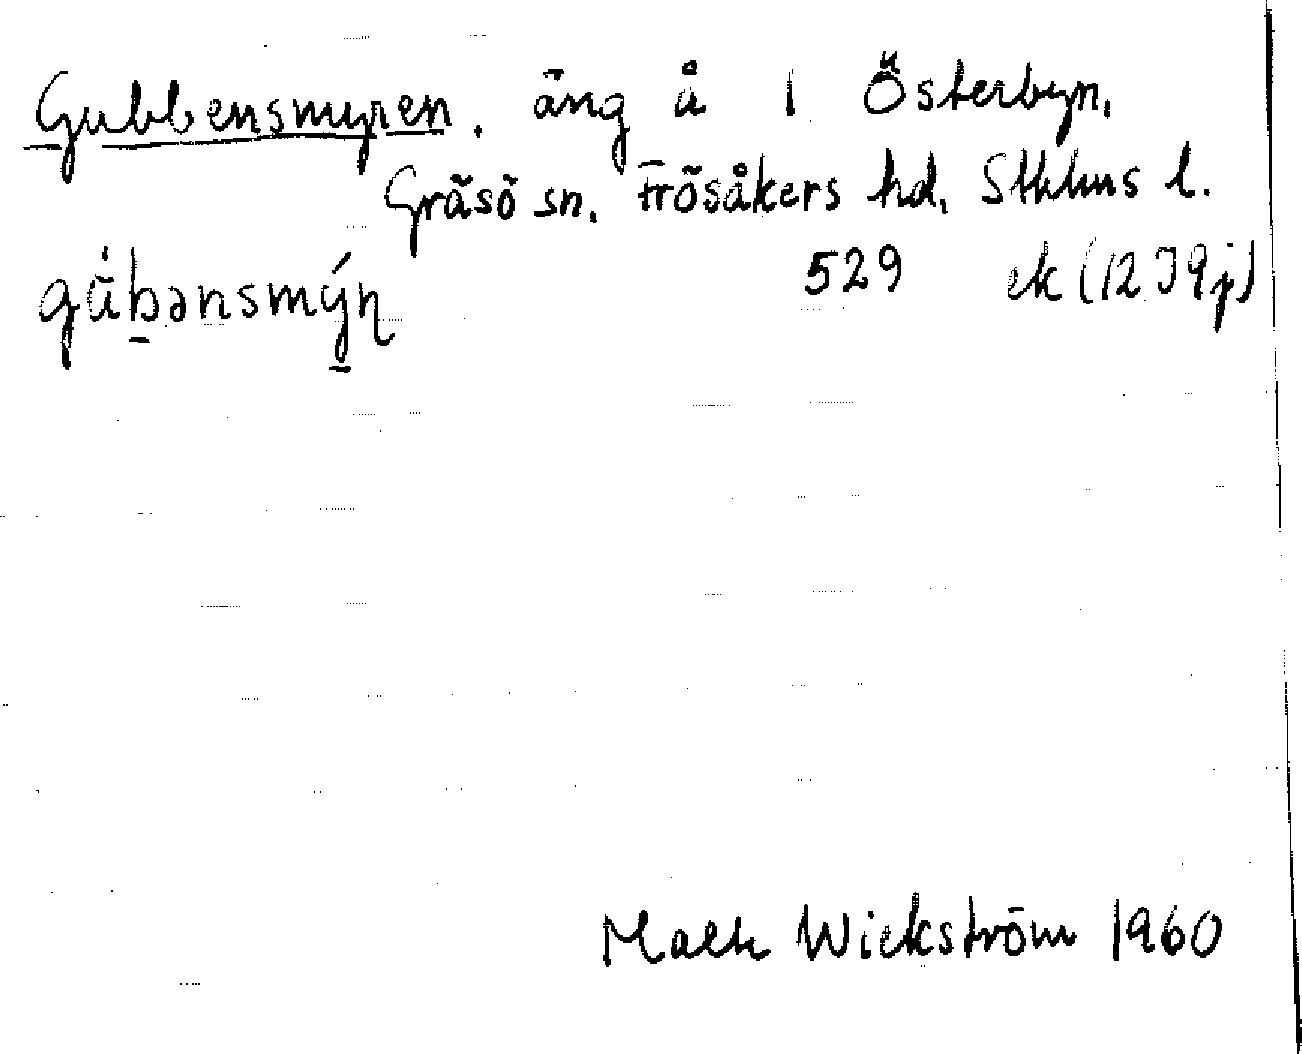 Gubbensmyren. äng å 1 Österbyn,
Gräsö sn. Frösåkers hd, Sthlms l.
gu̇̄b̠ənsmý̠ɳ 529 ek (12 I 9 j)
Wickström 1960